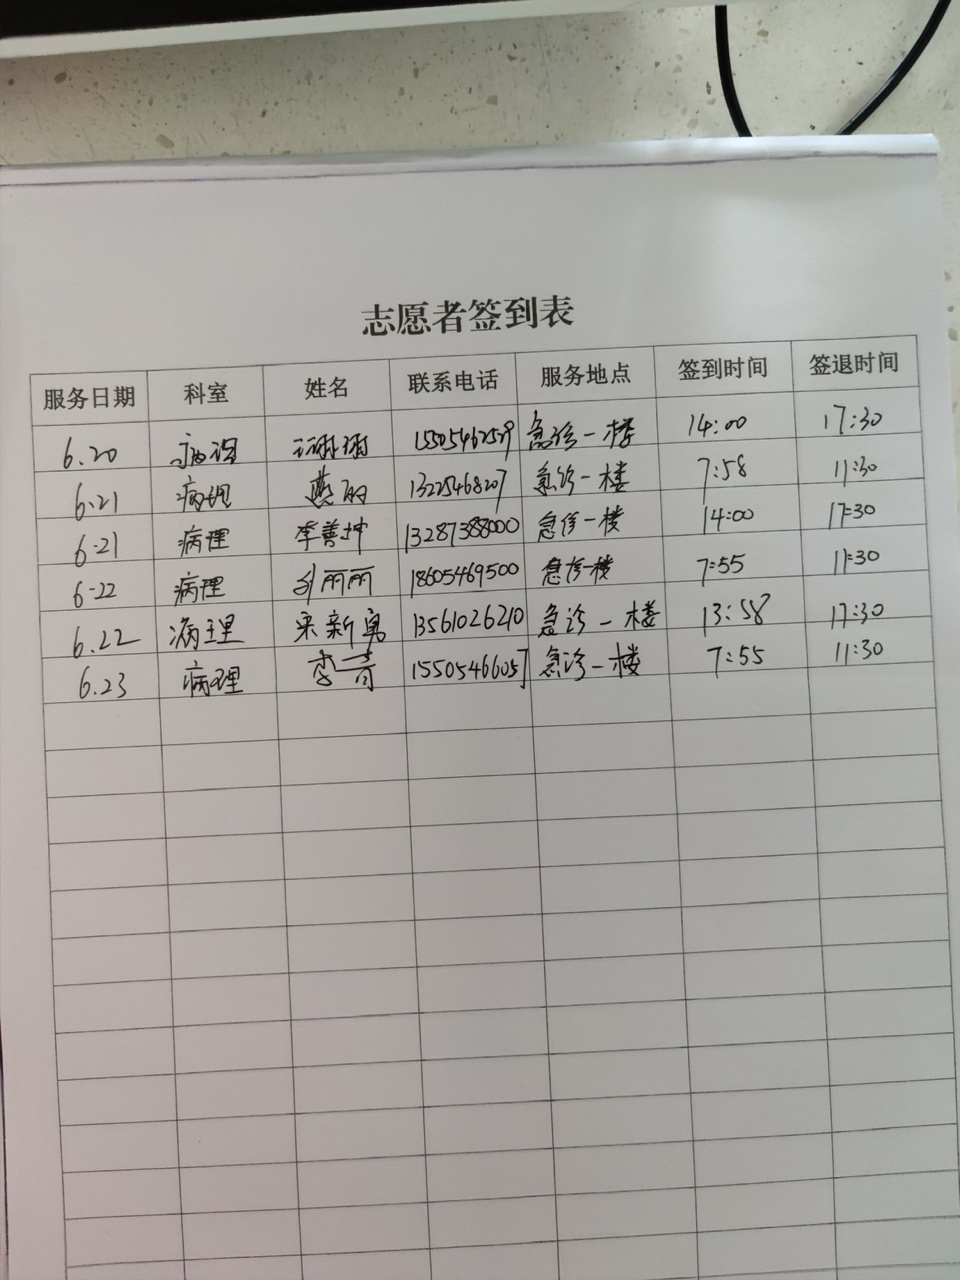 志愿者签到表
服务日期 科室 姓名 联系电话 服务地点 签到时间 签退时间
6.20 病理 急诊一楼 14:00 17:30
6.21 病理 燕 13225468207 急诊一楼 7:58 11:30
6.21 病理 李善坤 13287388000 急诊一楼 14:00 17:30
6.22 病理 刘丽丽 18605469500 急诊一楼 7:55 11:30
6.22 病理 宋新勇 13561026210 急诊一楼 13:58 17:30
6.23 病理 李 15505466057 急诊一楼 7:55 11:30